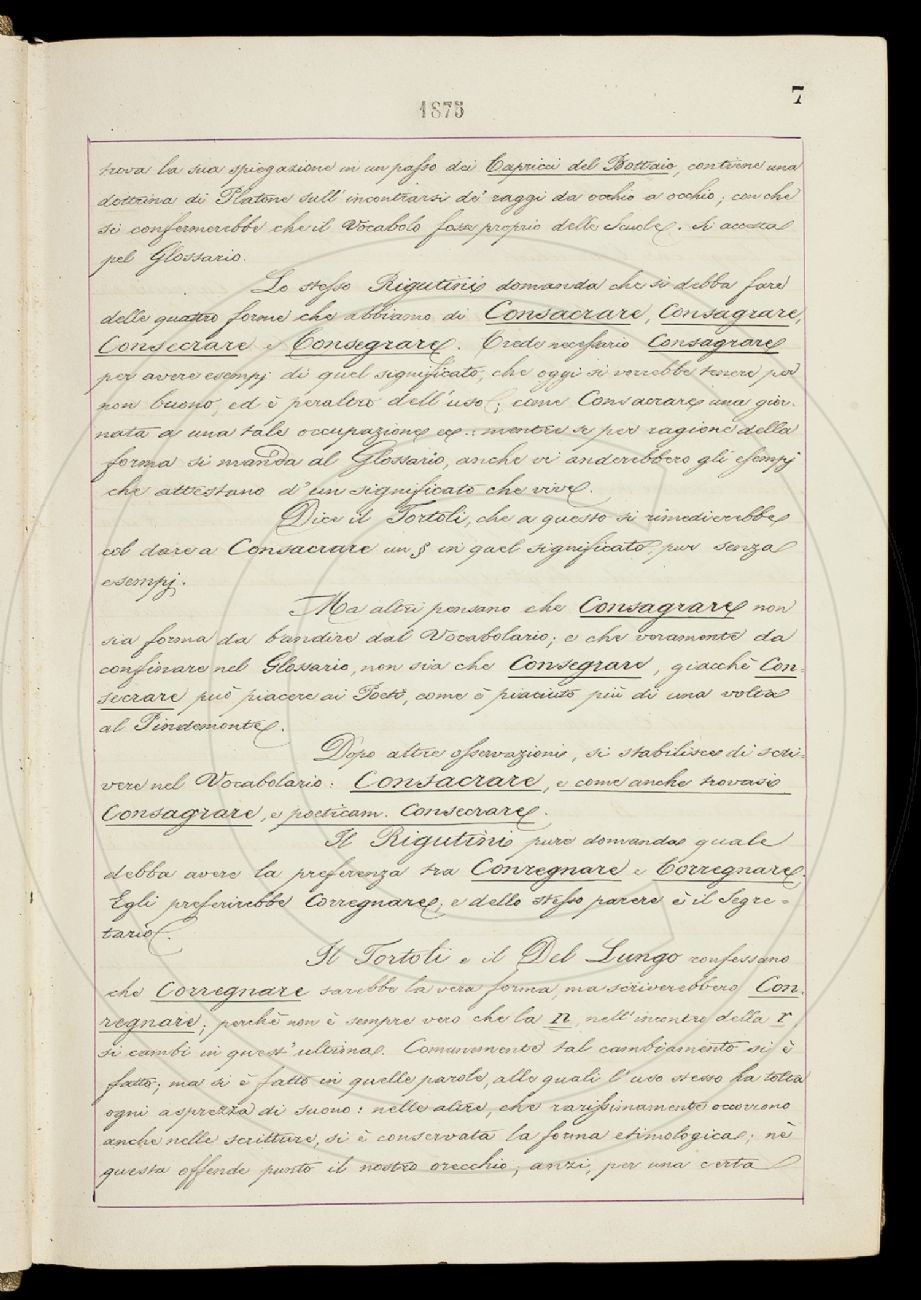 1875
7
trova la sua spiegazione in un passo dei Capricci del Bottaio, contiene una
dottrina di Platone sull'incontrarsi de' raggi da occhio a occhio; con che
si confermerebbe che il Vocabolo fosse proprio delle Scuole. Si accetta
pel Glossario.
Lo stesso Rigutini domanda che si debba fare
delle quattro forme che abbiamo di Consacrare, Consagrare,
Consecrare e Consegrare. Crede necessario Consagrare
per avere esempj di quel significato, che oggi si vorrebbe tenere per
non buono, ed è peraltro dell'uso; come Consacrare una gior-
nata a una tale occupazione ec.: mentre se per ragione della
forma si manda al Glossario, anche vi anderebbero gli esempj
che attestano d'un significato che vive.
Dice il Tortoli, che a questo si rimedierebbe
col dare a Consacrare un § in quel significato, pur senza
esempj.
Ma altri pensano che Consagrare non
sia forma da bandire dal Vocabolario; e che veramente da
confinare nel Glossario, non sia che Consegrare, giacchè Con-
secrare può piacere ai Poeti, come è piaciuto più di una volta
al Pindemonte.
Dopo altre osservazioni, si stabilisce di scri-
vere nel Vocabolario: Consacrare, e come anche trovasi
Consagrare, e poeticam. Consecrare.
Il Rigutini pure domanda quale
debba avere la preferenza tra Conregnare e Corregnare.
Egli preferirebbe Corregnare; e dello stesso parere è il Segre-
tario.
Il Tortoli e il Del Lungo confessano
che Corregnare sarebbe la vera forma, ma scriverebbero Con-
regnare; perchè non è sempre vero che la n, nell'incontro della r
si cambi in quest'ultima. Comunemente tal cambiamento si è
fatto; ma si è fatto in quelle parole, alle quali l'uso stesso ha tolta
ogni asprezza di suono: nelle altre, che rarissimamente occorrono
anche nelle scritture, si è conservata la forma etimologica; nè
questa offende punto il nostro orecchio, anzi, per una certa